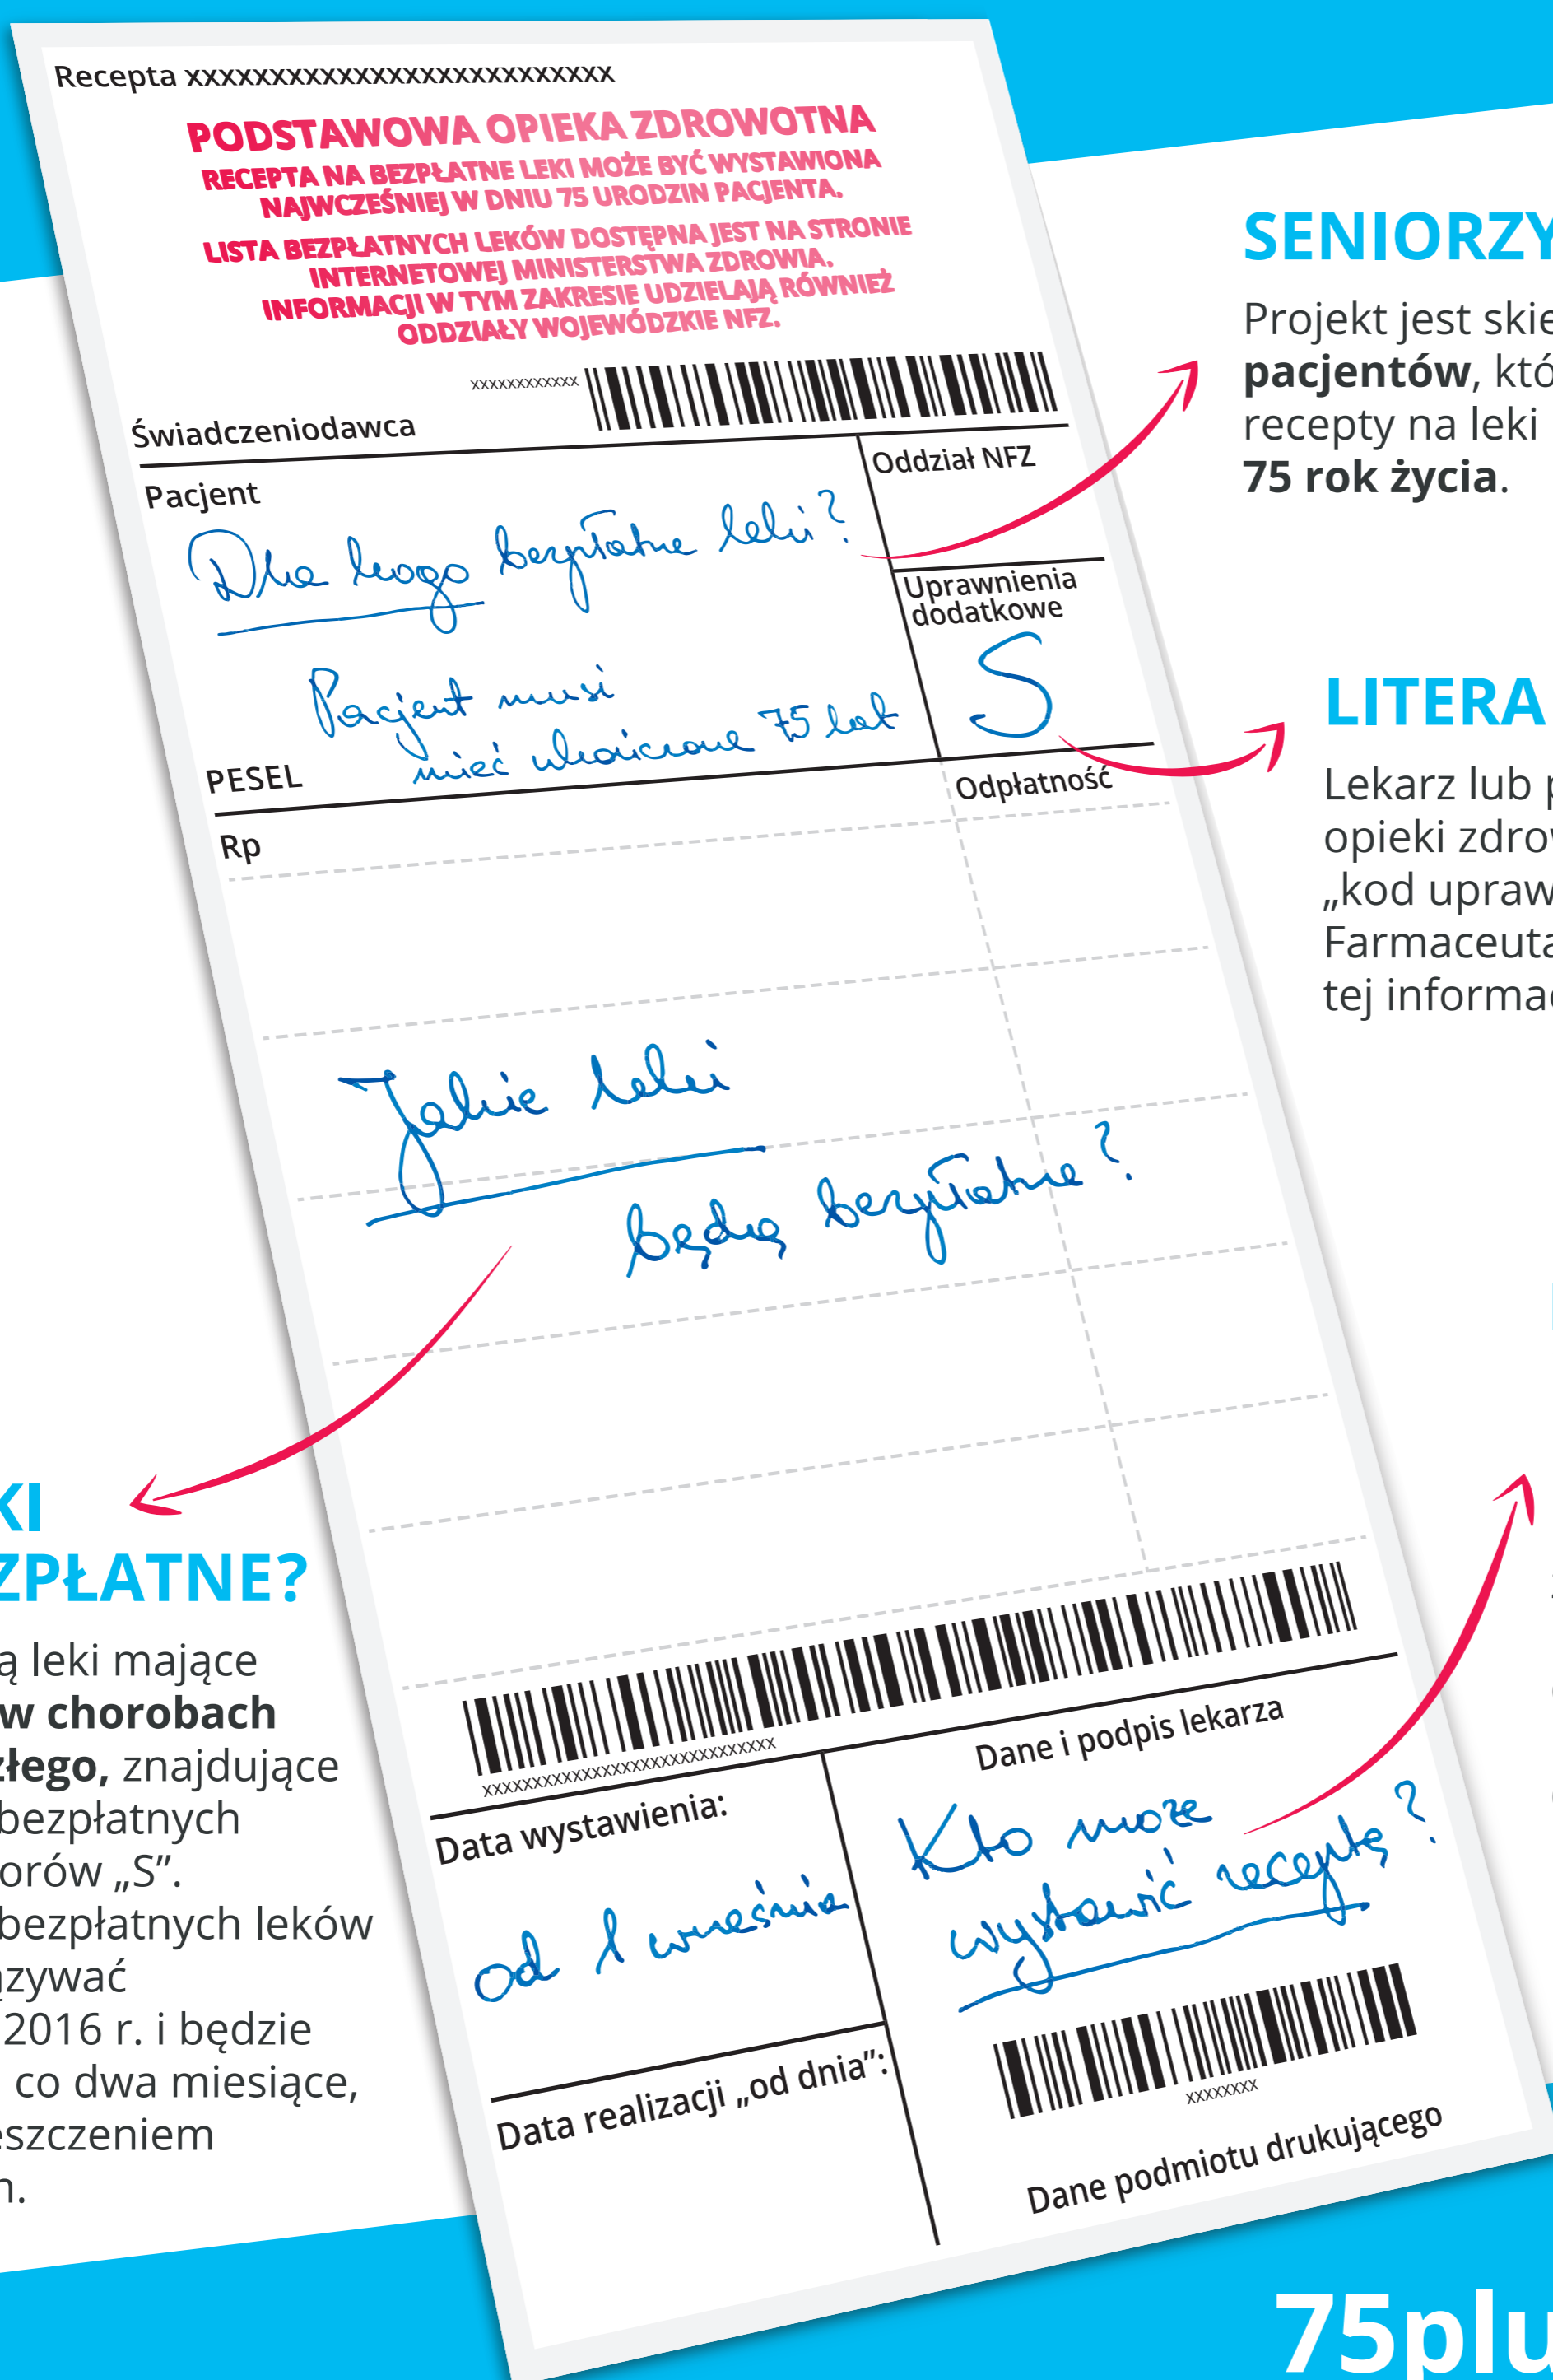 Recepta xxxxxxxxxxxxxxxxxxxxxxxxxx
PODSTAWOWA OPIEKA ZDROWOTNA
RECEPTA NA BEZPŁATNE LEKI MOŻE BYĆ WYSTAWIONA
NAJWCZEŚNIEJ W DNIU 75 URODZIN PACJENTA.
LISTA BEZPŁATNYCH LEKÓW DOSTĘPNA JEST NA STRONIE
INTERNETOWEJ MINISTERSTWA ZDROWIA.
INFORMACJI W TYM ZAKRESIE UDZIELAJĄ RÓWNIEŻ
ODDZIAŁY WOJEWÓDZKIE NFZ.
xxxxxxxxxxxx
Świadczeniodawca
Pacjent
Oddział NFZ
Dla kogo bezpłatne leki?
Uprawnienia
dodatkowe
S
Pacjent musi
mieć ukończone 75 lat
PESEL
Odpłatność
Rp
Jakie leki
będą bezpłatne?
xxxxxxxxxxxxxxxxxxxxxxxxxxxxx
Data wystawienia:
od 1 września
Dane i podpis lekarza
Kto może
wystawić receptę?
Data realizacji „od dnia”:
xxxxxxxx
Dane podmiotu drukującego
SENIORZY
Projekt jest skie
pacjentów, któ
recepty na leki
75 rok życia.
LITERA
Lekarz lub p
opieki zdrow
„kod upraw
Farmaceuta
tej informac
KI
ZPŁATNE?
ą leki mające
w chorobach
złego, znajdujące
bezpłatnych
orów „S”.
bezpłatnych leków
ązywać
2016 r. i będzie
co dwa miesiące,
eszczeniem
75plu